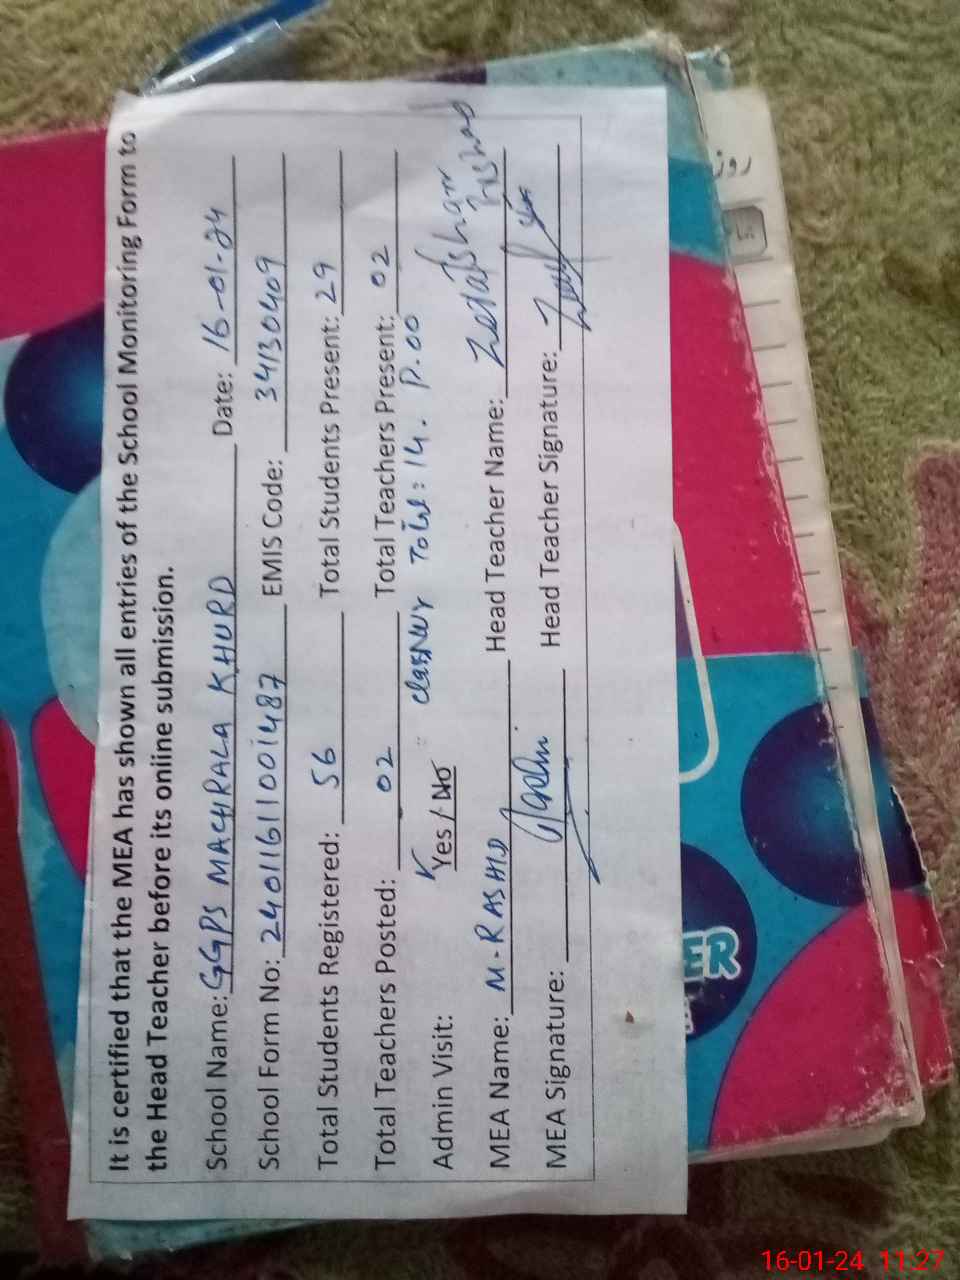 It is certified that the MEA has shown all entries of the School Monitoring Form to
the Head Teacher before its online submission.
School Name: GGPS MACHRALA KHURD Date: 16-01-24
School Form No: 24011611001487 EMIS Code: 34130409
Total Students Registered: 56 Total Students Present: 29
Total Teachers Posted: 02 Total Teachers Present: 02
Admin Visit: Yes / No Total: 14. P.00
MEA Name: M. RASHID Head Teacher Name:
MEA Signature: Head Teacher Signature:
ER
روز
16-01-24 11:27